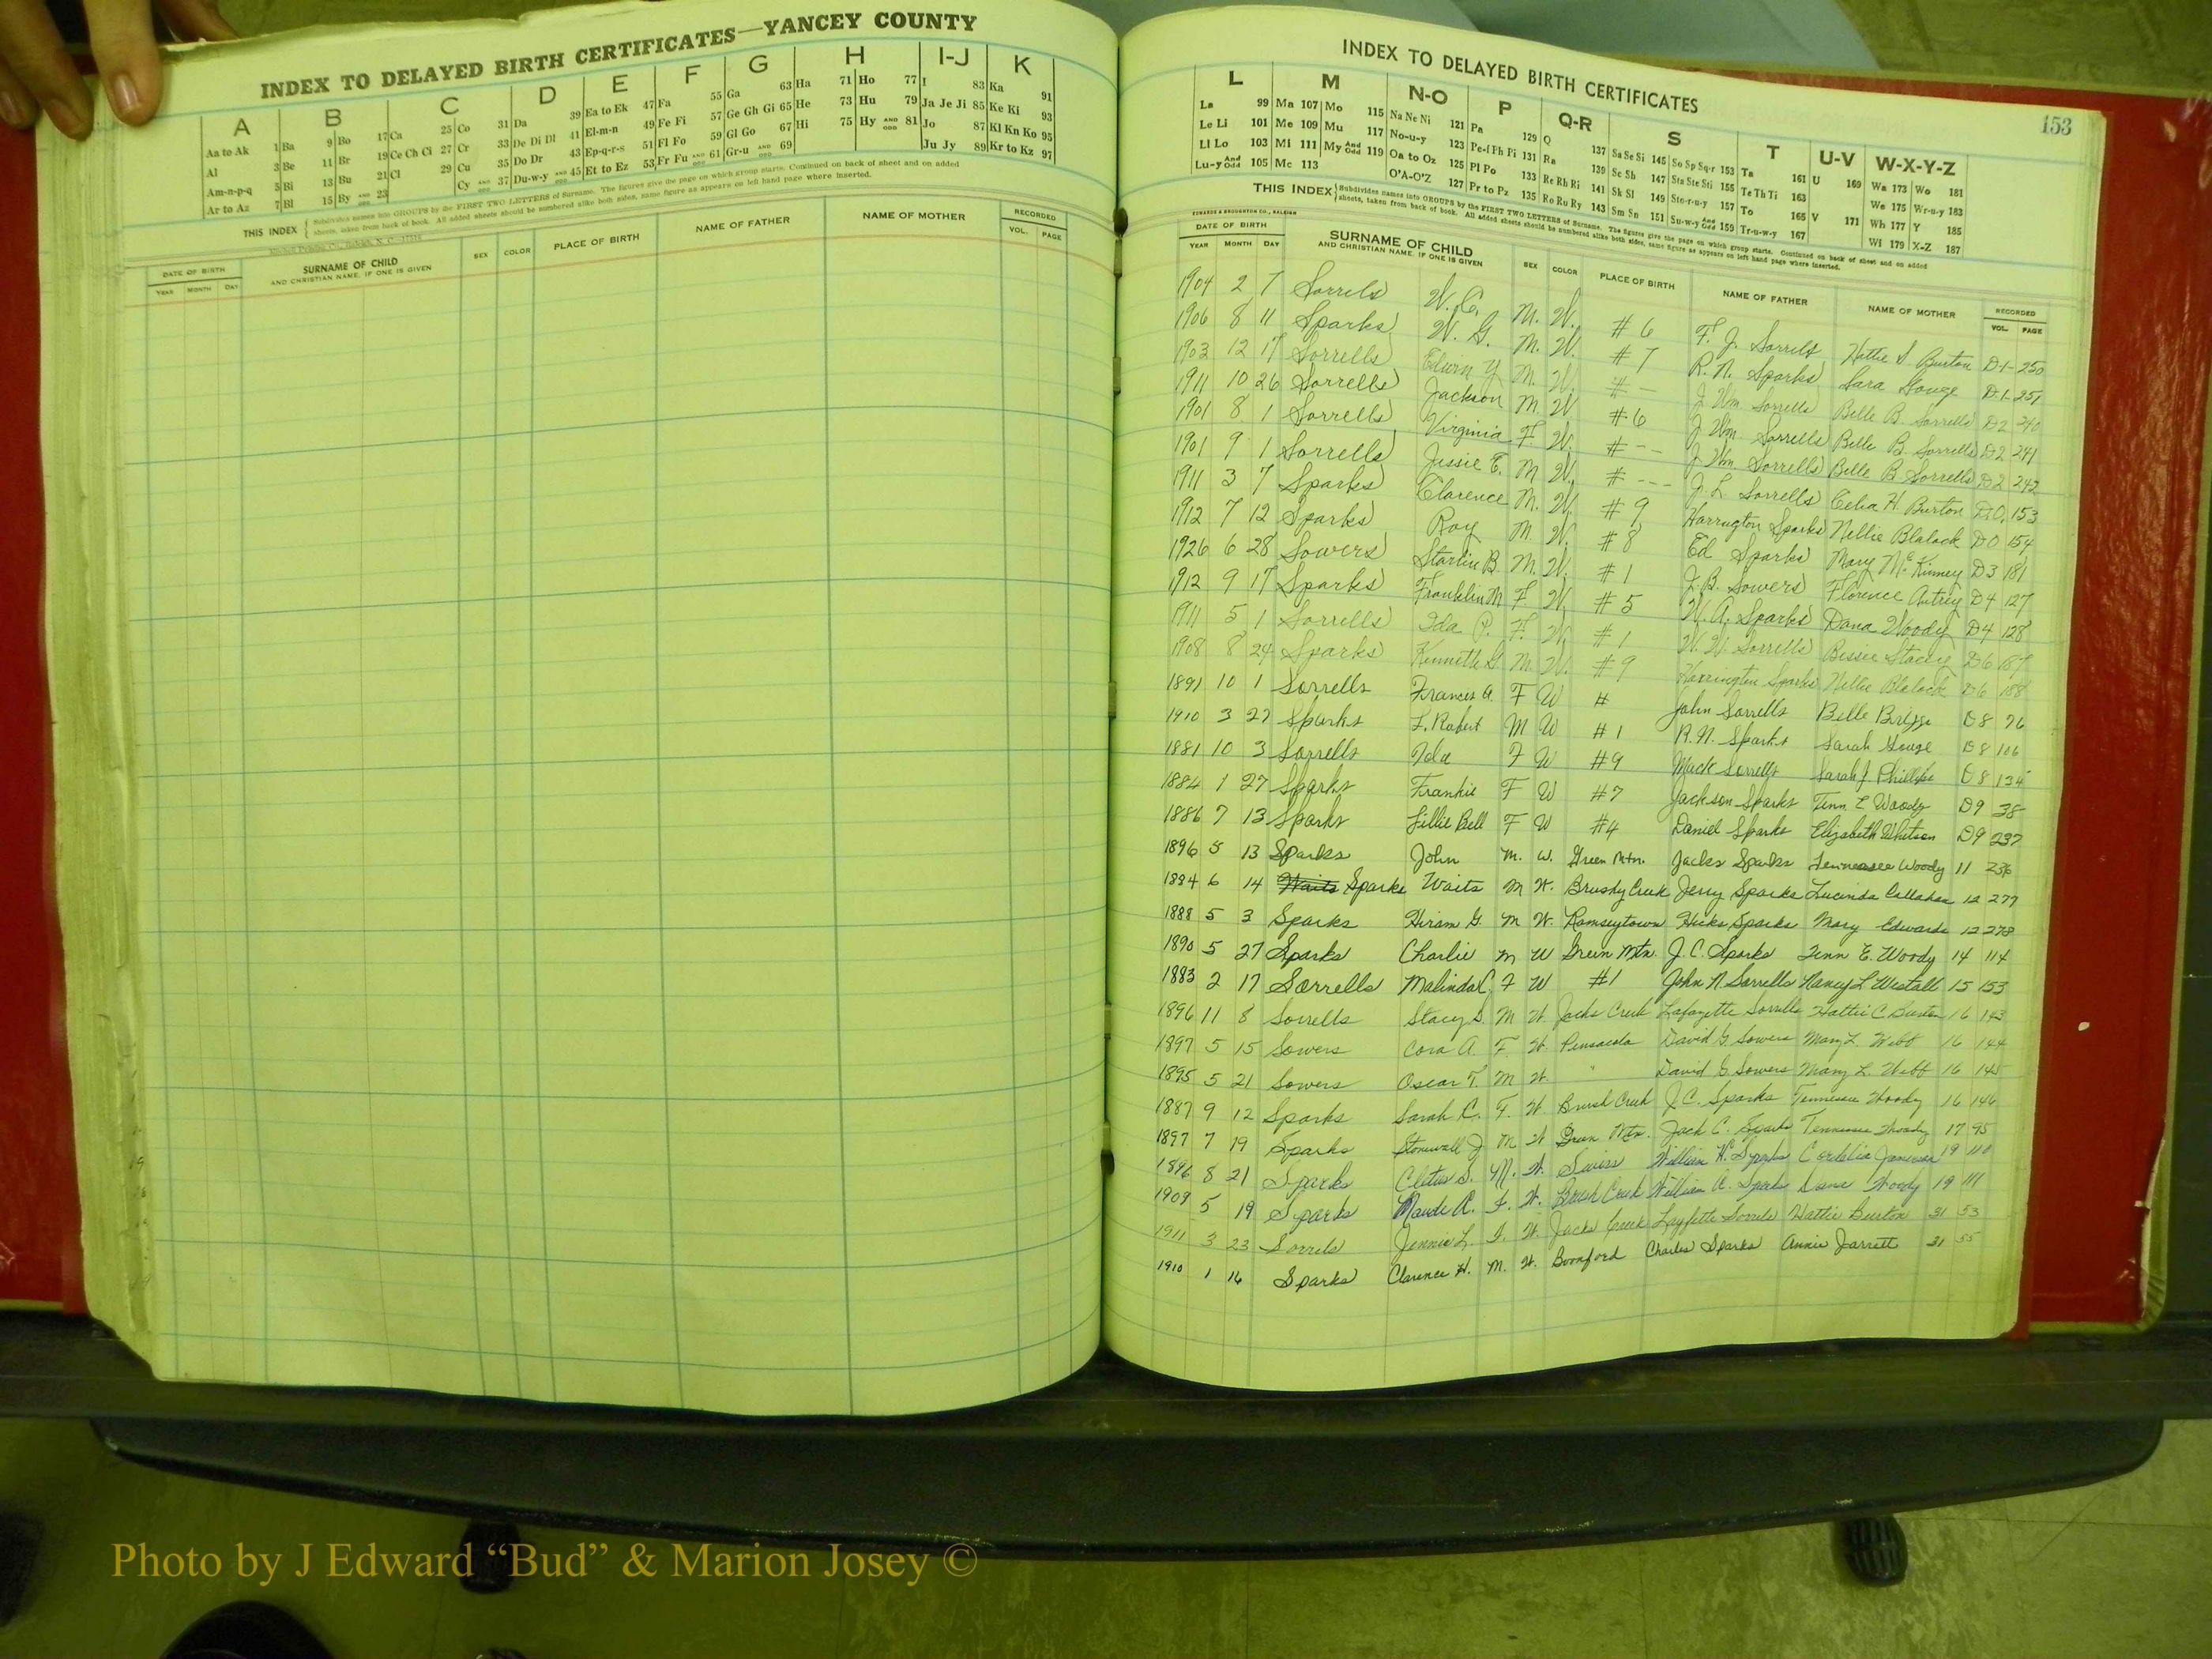 INDEX TO DELAYED BIRTH CERTIFICATES—YANCEY COUNTY
A B C D E F G H I-J K
Aa to Ak 1 Ba 9 Bo 17 Ca 25 Co 31 Da 39 Ea to Ek 47 Fa 55 Ga 63 Ha 71 Ho 77 I 83 Ka 91
Al 3 Be 11 Br 19 Ce Ch Ci 27 Cr 33 De Di Dl 41 El-m-n 49 Fe Fi 57 Ge Gh Gi 65 He 73 Hu 79 Ja Je Ji 85 Ke Ki 93
Am-n-p-q 5 Bi 13 Bu 21 Cl 29 Cu 35 Do Dr 43 Ep-q-r-s 51 Fl Fo 59 Gl Go 67 Hi 75 Hy AND ODD 81 Jo 87 Kl Kn Ko 95
Ar to Az 7 Bl 15 By AND ODD 23 Cy AND ODD 37 Du-w-y AND ODD 45 Et to Ez 53 Fr Fu AND ODD 61 Gr-u AND ODD 69 Ju Jy 89 Kr to Kz 97
THIS INDEX { Subdivides names into GROUPS by the FIRST TWO LETTERS of Surname. The figures give the page on which group starts. Continued on back of sheet and on added
sheets, taken from back of book. All added sheets should be numbered alike both sides, same figure as appears on left hand page where inserted.
DATE OF BIRTH SURNAME OF CHILD SEX COLOR PLACE OF BIRTH NAME OF FATHER NAME OF MOTHER RECORDED
YEAR MONTH DAY AND CHRISTIAN NAME, IF ONE IS GIVEN VOL. PAGE
INDEX TO DELAYED BIRTH CERTIFICATES
153
L M N-O P Q-R S T U-V W-X-Y-Z
La 99 Ma 107 Mo 115 Na Ne Ni 121 Pa 129 Q 137 Sa Se Si 145 So Sp Sq-r 153 Ta 161 U 169 Wa 173 Wo 181
Le Li 101 Me 109 Mu 117 No-u-y 123 Pe-f Ph Pi 131 Ra 139 Sc Sh 147 Sta Ste Sti 155 Te Th Ti 163 We 175 Wr-u-y 183
Ll Lo 103 Mi 111 My And Odd 119 Oa to Oz 125 Pl Po 133 Re Rh Ri 141 Sk Sl 149 Sto-r-u-y 157 To 165 V 171 Wh 177 Y 185
Lu-y And Odd 105 Mc 113 O'A-O'Z 127 Pr to Pz 135 Ro Ru Ry 143 Sm Sn 151 Su-w-y And Odd 159 Tr-u-w-y 167 Wi 179 X-Z 187
THIS INDEX { Subdivides names into GROUPS by the FIRST TWO LETTERS of Surname. The figures give the page on which group starts. Continued on back of sheet and on added
sheets, taken from back of book. All added sheets should be numbered alike both sides, same figure as appears on left hand page where inserted.
EDWARDS & BROUGHTON CO., RALEIGH
DATE OF BIRTH SURNAME OF CHILD SEX COLOR PLACE OF BIRTH NAME OF FATHER NAME OF MOTHER RECORDED
YEAR MONTH DAY AND CHRISTIAN NAME, IF ONE IS GIVEN VOL. PAGE
1904 2 7 Sorrels W. C. M. W. #6 F. J. Sorrels Hattie S. Burton D-1- 250
1906 8 11 Sparks W. G. M. W. #7 R. N. Sparks Sara Gouge D-1- 251
1903 12 17 Sorrells Edwin Y M. W. # — J. Wm. Sorrells Belle B. Sorrells D2 240
1911 10 26 Sorrells Jackson M. W #6 J Wm. Sorrells Belle B. Sorrells D2 241
1901 8 1 Sorrells Virginia F. W. # -- J Wm. Sorrells Belle B. Sorrells D2 242
1901 9 1 Sorrells Jessie E. M W. # --- J L Sorrells Celia H. Burton D0 153
1911 3 7 Sparks Clarence M. W. #9 Harrington Sparks Nellie Blalock D0 154
1912 7 12 Sparks Roy M W. #8 Ed Sparks Mary McKinney D3 181
1926 6 28 Sowers Starlin B. M. W. #1 J. B. Sowers Florence Autrey D4 127
1912 9 17 Sparks Franklin M F W. #5 W. A. Sparks Dana Woody D4 128
1911 5 1 Sorrells Ida P. F. W. #1 W. W. Sorrells Bessie Stacey D6 187
1908 8 24 Sparks Kenneth G. M. W. #9 Harrington Sparks Nellie Blalock D6 188
1891 10 1 Sorrells Frances A. F W # John Sorrells Belle Briggs D8 76
1910 3 27 Sparks F. Robert M W #1 R. N. Sparks Sarah Gouge D8 106
1881 10 3 Sorrells Ida F W #9 Mack Sorrells Sarah J. Phillips D8 134
1884 1 27 Sparks Frankie F W #7 Jackson Sparks Tenn E Woody D9 38
1886 7 13 Sparks Lillie Bell F W #4 Daniel Sparks Elizabeth Whitson D9 237
1896 5 13 Sparks John M. W. Green Mtn. Jacks Sparks Tennessee Woody 11 236
1884 6 14 Waits Sparks Waits M W. Brushy Creek Jerry Sparks Lucinda Callahan 12 277
1888 5 3 Sparks Hiram G. M W. Ramseytown Hicks Sparks Mary Edwards 12 278
1890 5 27 Sparks Charlie M W Green Mtn. J. C. Sparks Tenn E. Woody 14 114
1883 2 17 Sorrells Malinda C. F W #1 John N Sorrells Nancy L Westall 15 153
1896 11 8 Sorrells Stacy S. M W. Jacks Creek Lafayette Sorrells Hattie C Burton 16 143
1897 5 15 Sowers Cora A. F. W. Pensacola David G. Sowers Mary L. Webb 16 144
1895 5 21 Sowers Oscar T. M W. " David G. Sowers Mary L. Webb 16 145
1887 9 12 Sparks Sarah C. F. W. Brush Creek J. C. Sparks Tennessee Woody 16 146
1897 7 19 Sparks Stonewall J M W Green Mtn. Jack C. Sparks Tennessee Woody 17 95
1896 8 21 Sparks Cletus S. M. W. Swiss William H. Sparks Cordelia 19 110
1909 5 19 Sparks Maude A. F. W. Brush Creek William A. Sparks Dana Woody 19 111
1911 3 23 Sorrels Jennie L. F. W. Jacks Creek Layfette Sorrels Hattie Burton 31 53
1910 1 16 Sparks Clarence H. M. W. Boonford Charles Sparks Annie Jarrett 31 55
Photo by J Edward “Bud” & Marion Josey ©